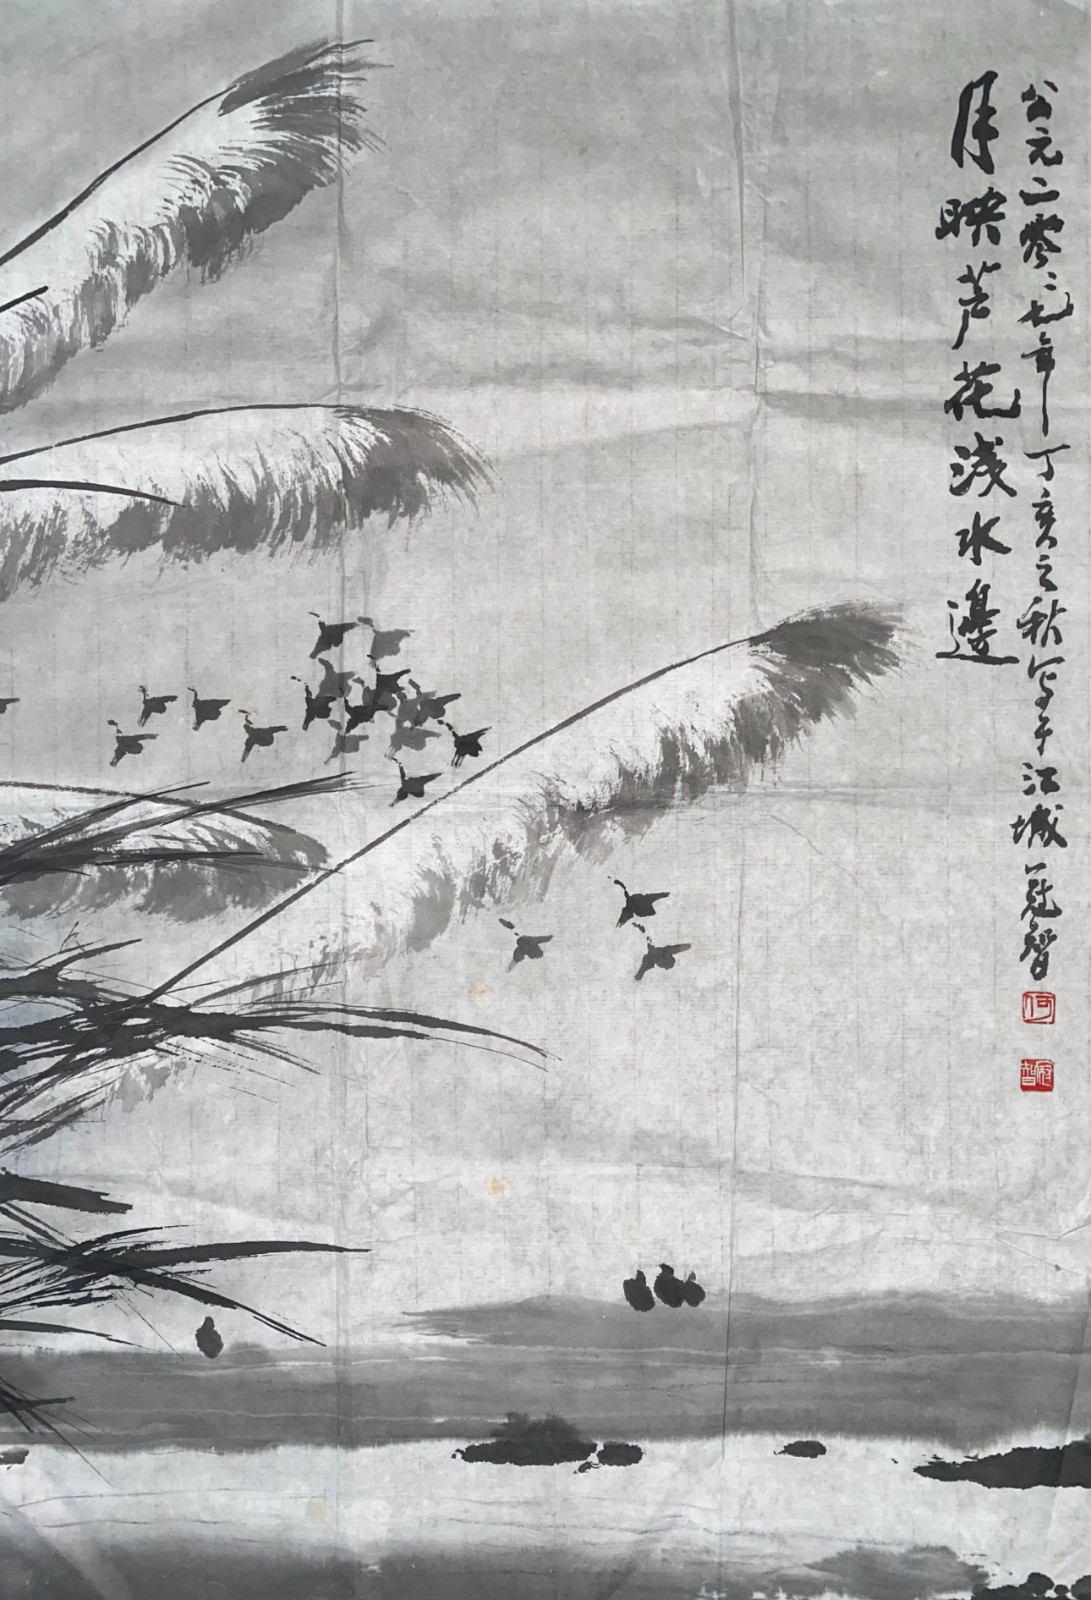 公元二零零七年丁亥之秋写于江城冠智
月映芦花浅水邊
何
冠智